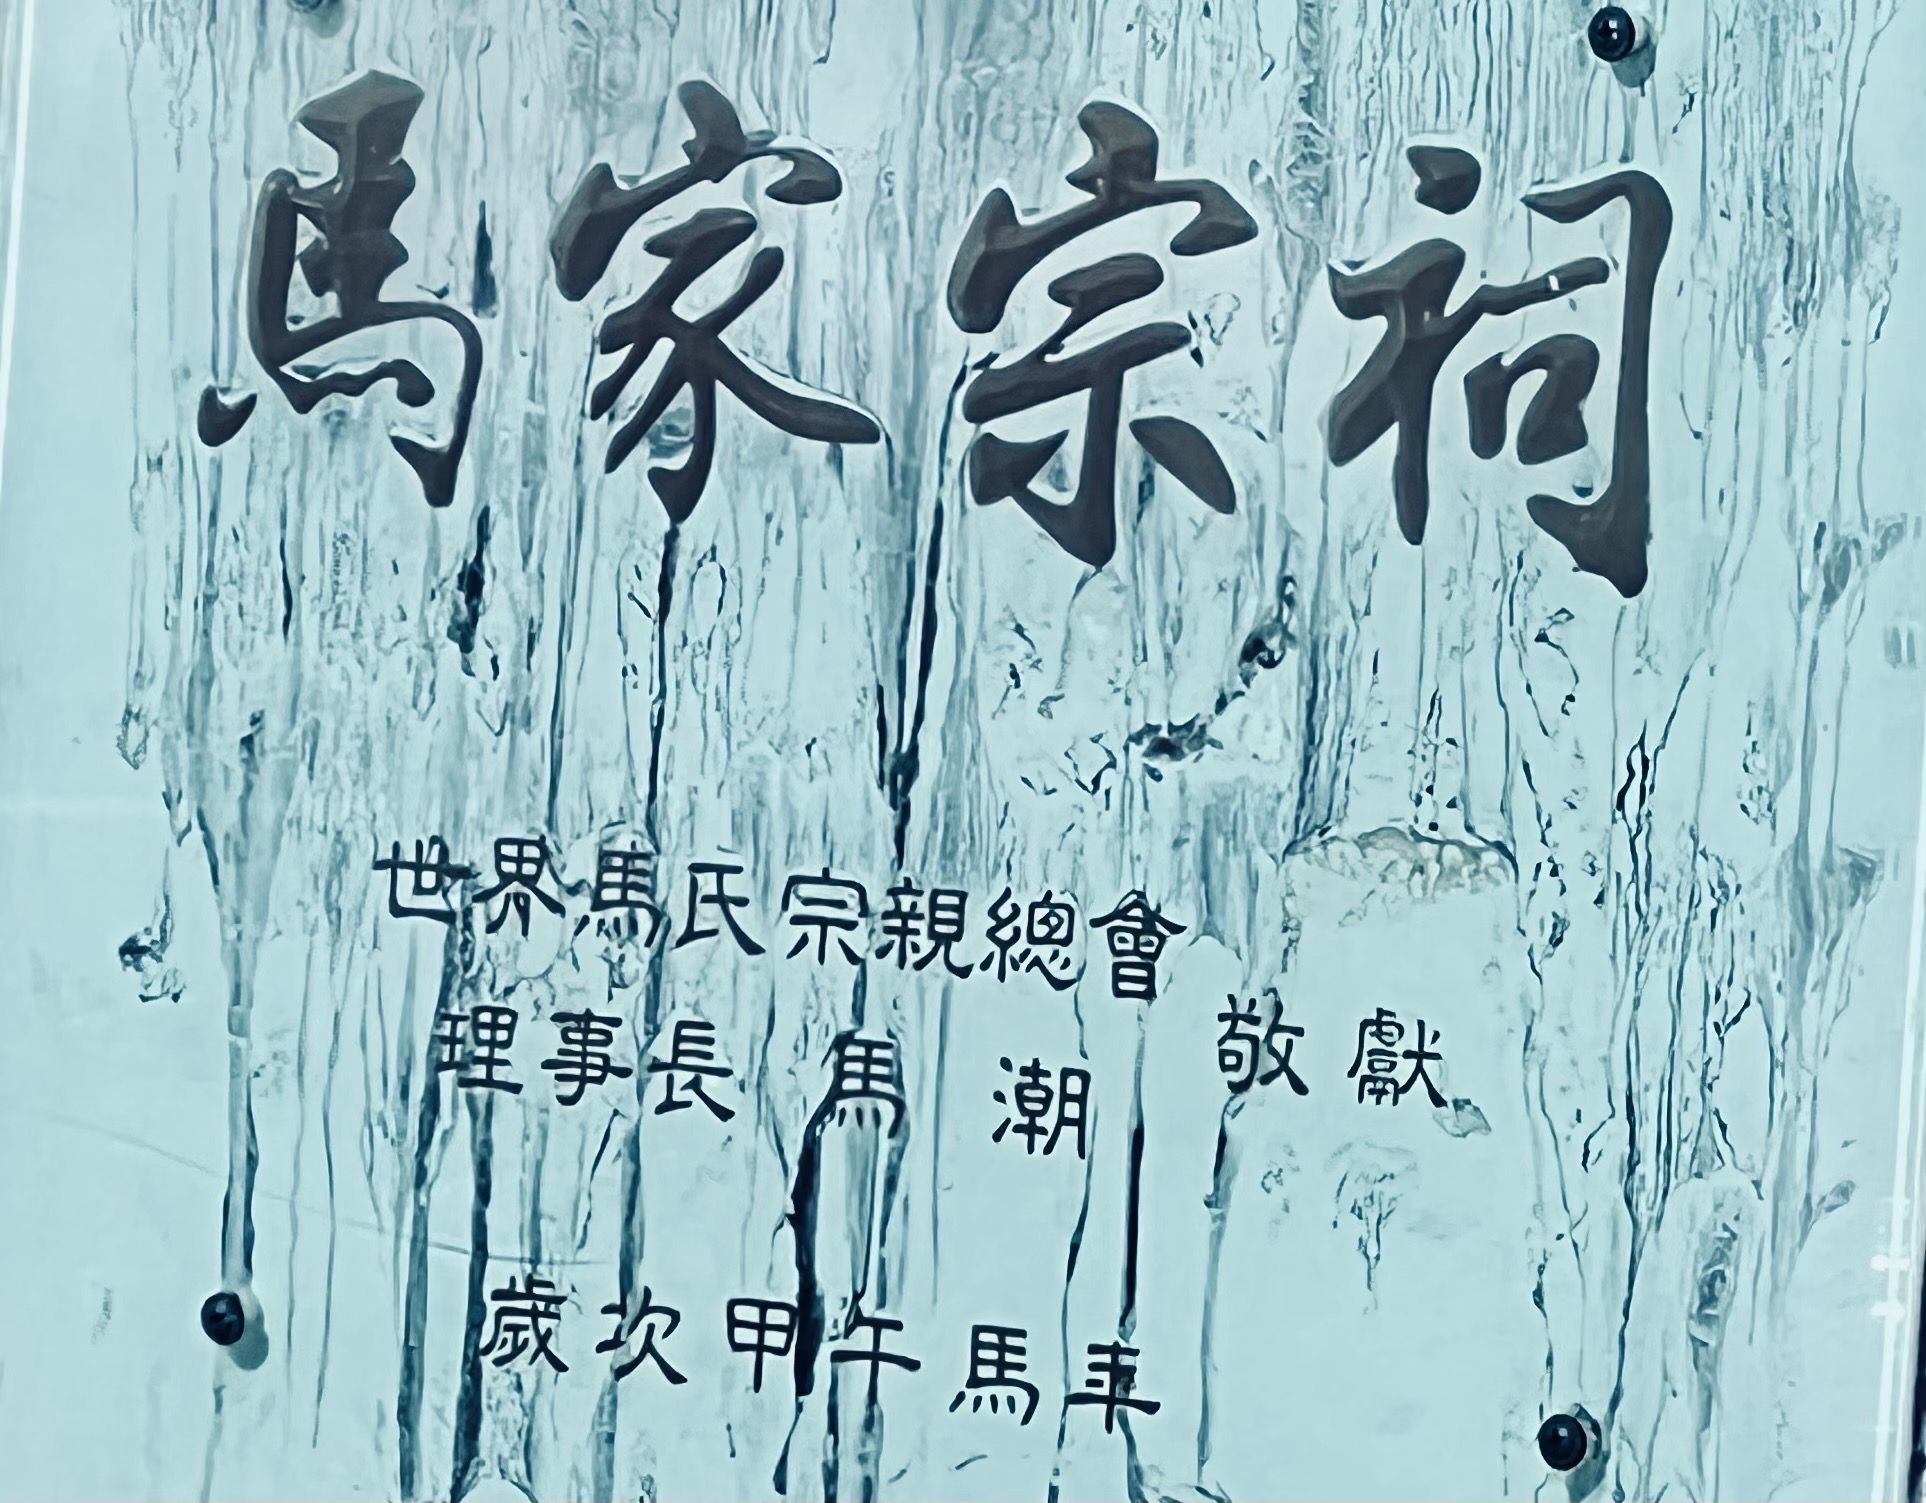 馬家宗祠
世界馬氏宗親總會
理事長 馬 潮 敬獻
歲次甲午馬年